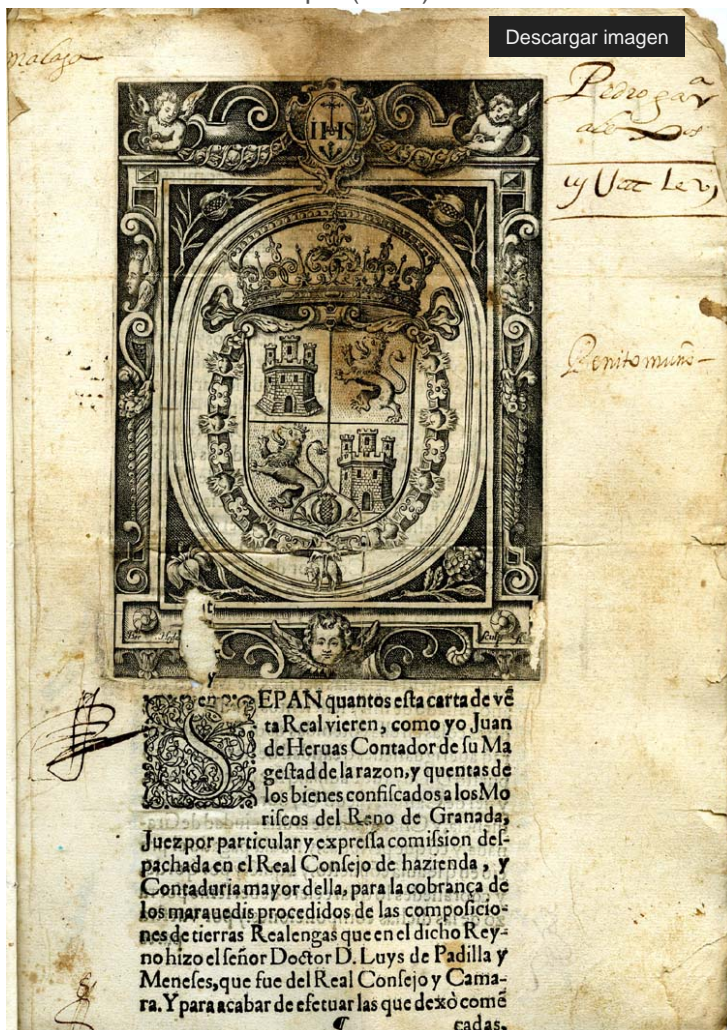 Descargar imagen
malaga
IHS
Benito muño
SEPAN quantos eſta carta de vẽ
ta Real vieren, como yo Juan
de Heruas Contador de ſu Ma
geſtad de la razon, y quentas de
los bienes confiſcados a los Mo
riſcos del Reno de Granada,
Juez por particular y expreſſa comiſsion deſ-
pachada en el Real Conſejo de hazienda, y
Contaduria mayor della, para la cobrança de
los marauedis procedidos de las compoſicio-
nes de tierras Realengas que en el dicho Rey-
no hizo el ſeñor Doctor D. Luys de Padilla y
Meneſes, que fue del Real Conſejo y Cama-
ra. Y para acabar de efetuar las que dexò comẽ
cadas,